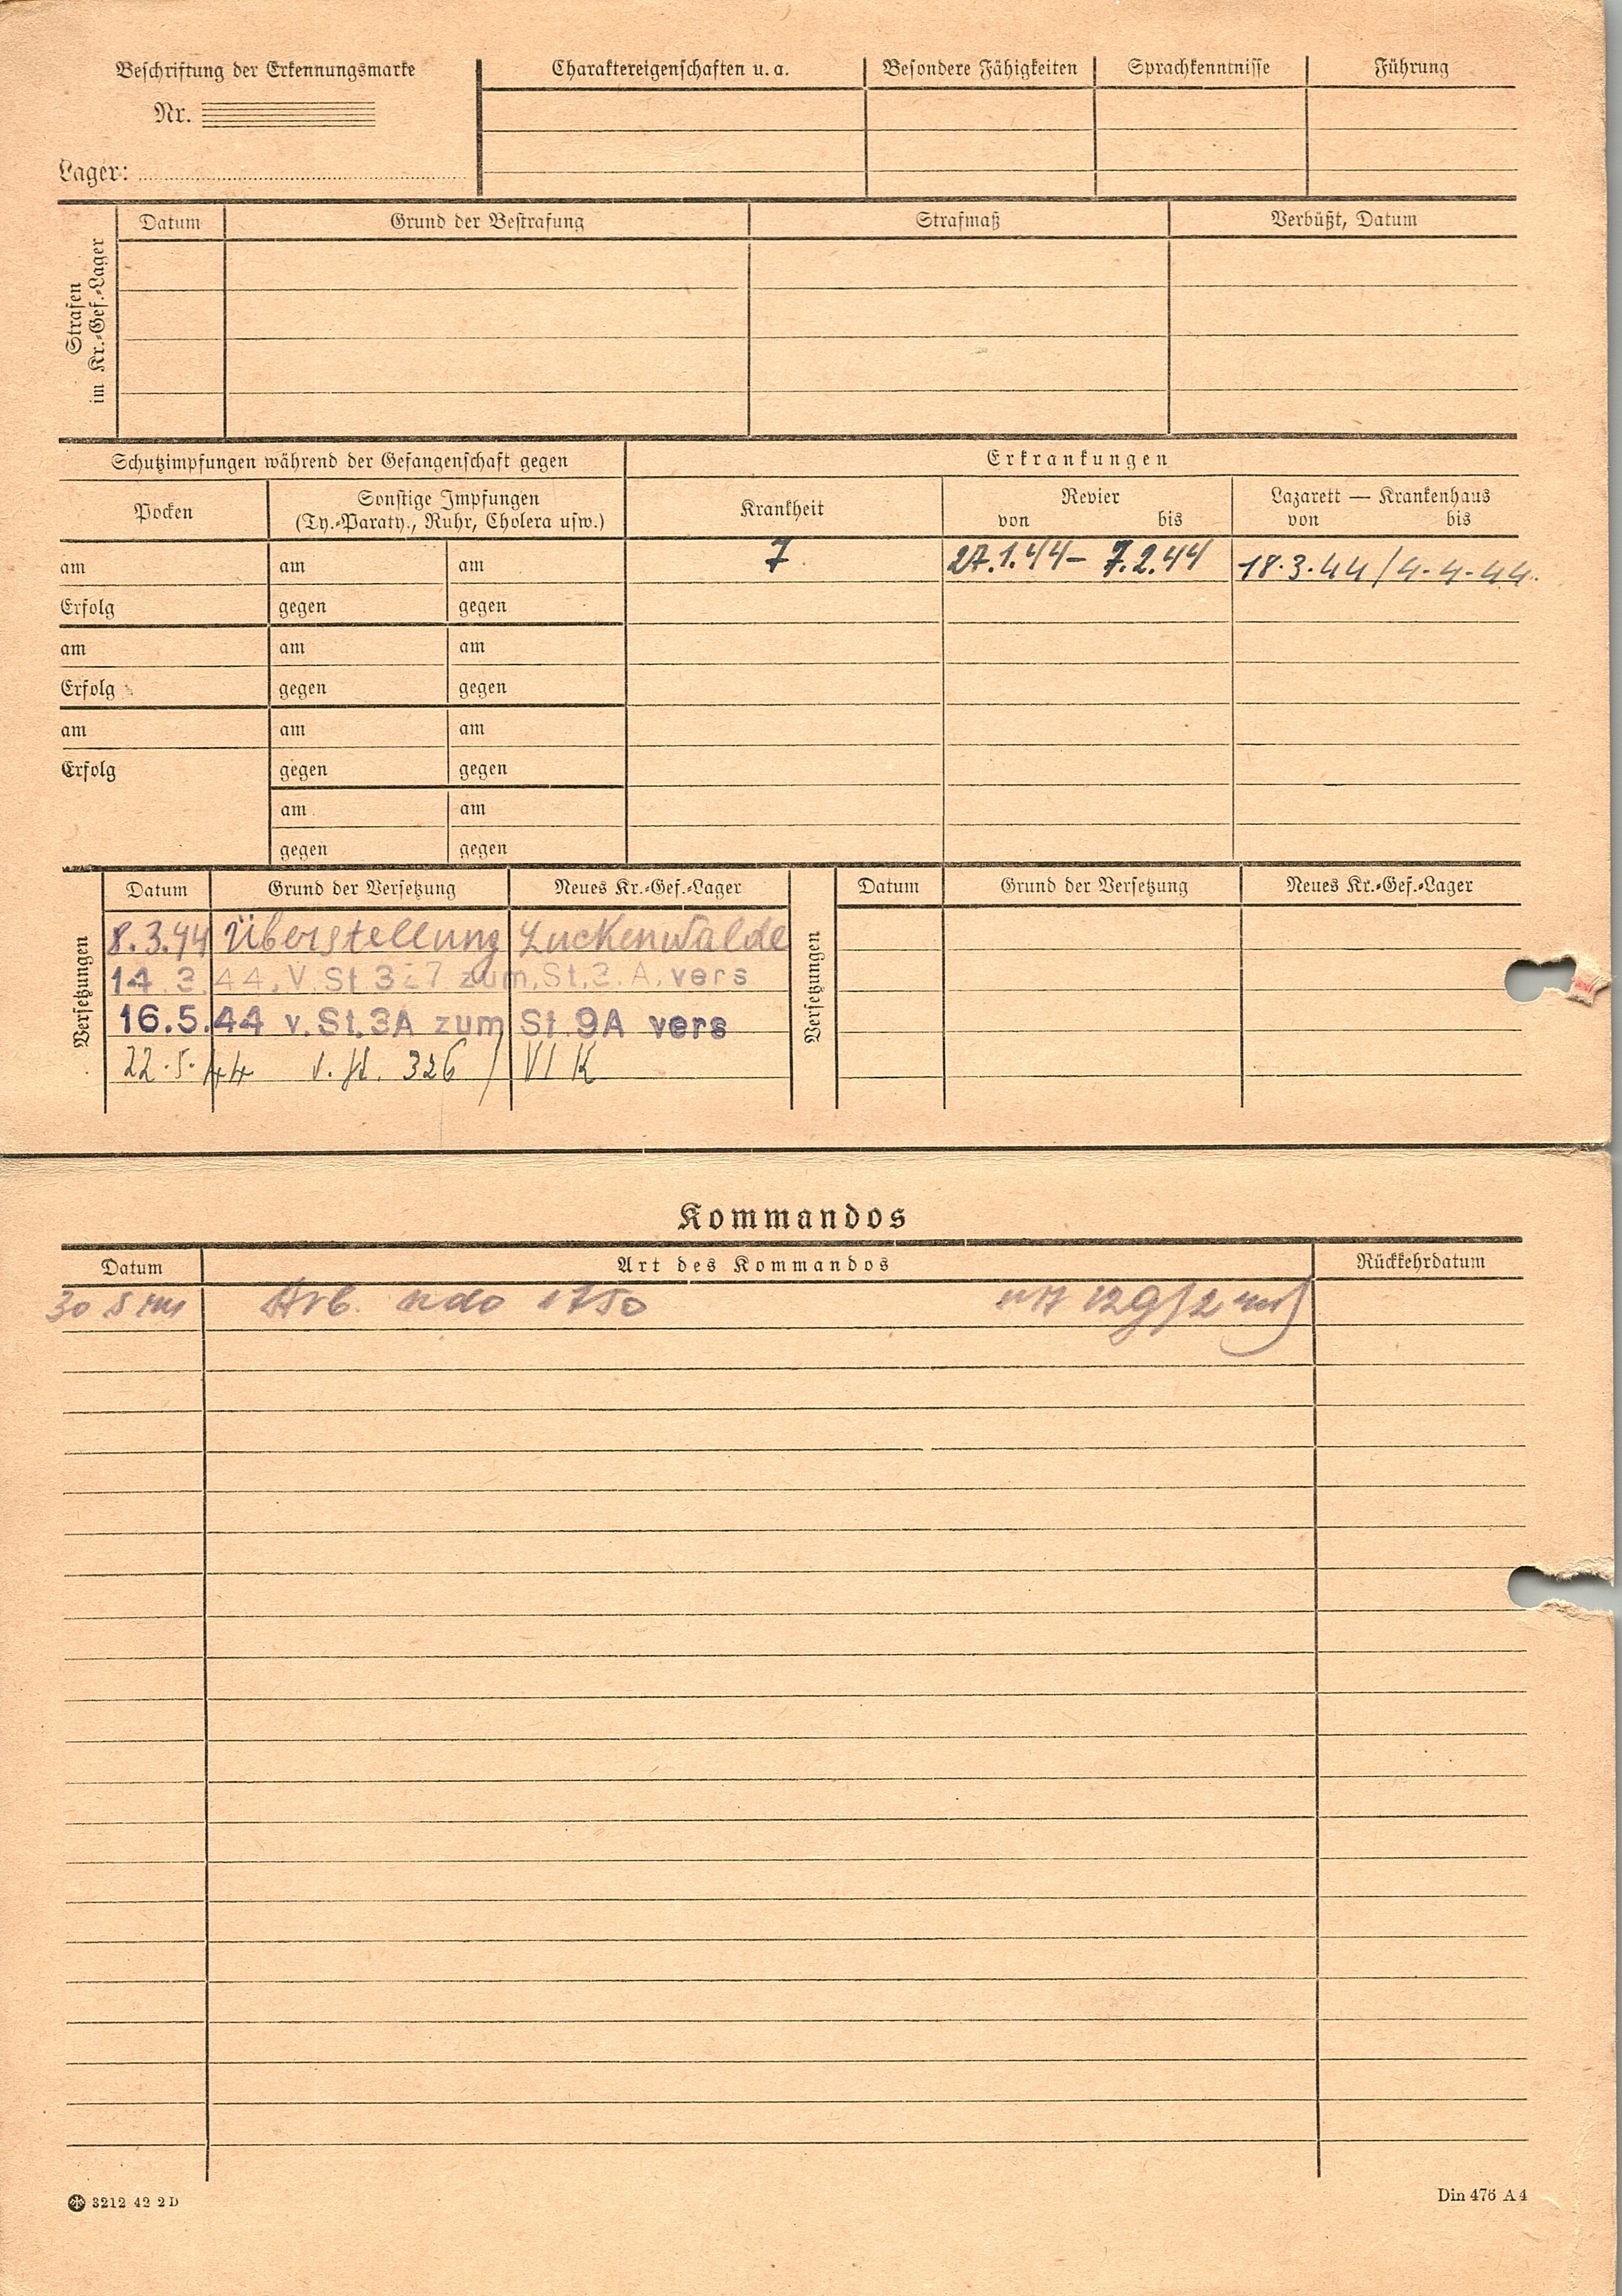 Beschriftung der Erkennungsmarke
Nr.
Lager:
Charaktereigenschaften u. a.
Besondere Fähigkeiten
Sprachkenntnisse
Führung
Strafen im Kr.-Gef.-Lager
Datum
Grund der Bestrafung
Strafmaß
Verbüßt, Datum
Schutzimpfungen während der Gefangenschaft gegen
Erkrankungen
Pocken
Sonstige Impfungen
(Ty.-Paraty., Ruhr, Cholera usw.)
Krankheit
Revier
von bis
Lazarett — Krankenhaus
von bis
am am am 7 27.1.44 - 7.2.44 18.3.44 / 4.4.44.
Erfolg gegen gegen
am am am
Erfolg gegen gegen
am am am
Erfolg gegen gegen
am am
gegen gegen
Versetzungen
Datum Grund der Versetzung Neues Kr.-Gef.-Lager
8.3.44 Überstellung Luckenwalde
14.3.44. V. St 327 zum. St. 3. A. vers
16.5.44 v. St. 3A zum St. 9A vers
22.5.44 v. St. 326 / VI K
Versetzungen
Datum Grund der Versetzung Neues Kr.-Gef.-Lager
Kommandos
Datum Art des Kommandos Rückkehrdatum
30 5 Arb. 1750
3212 42 2 D
Din 476 A 4